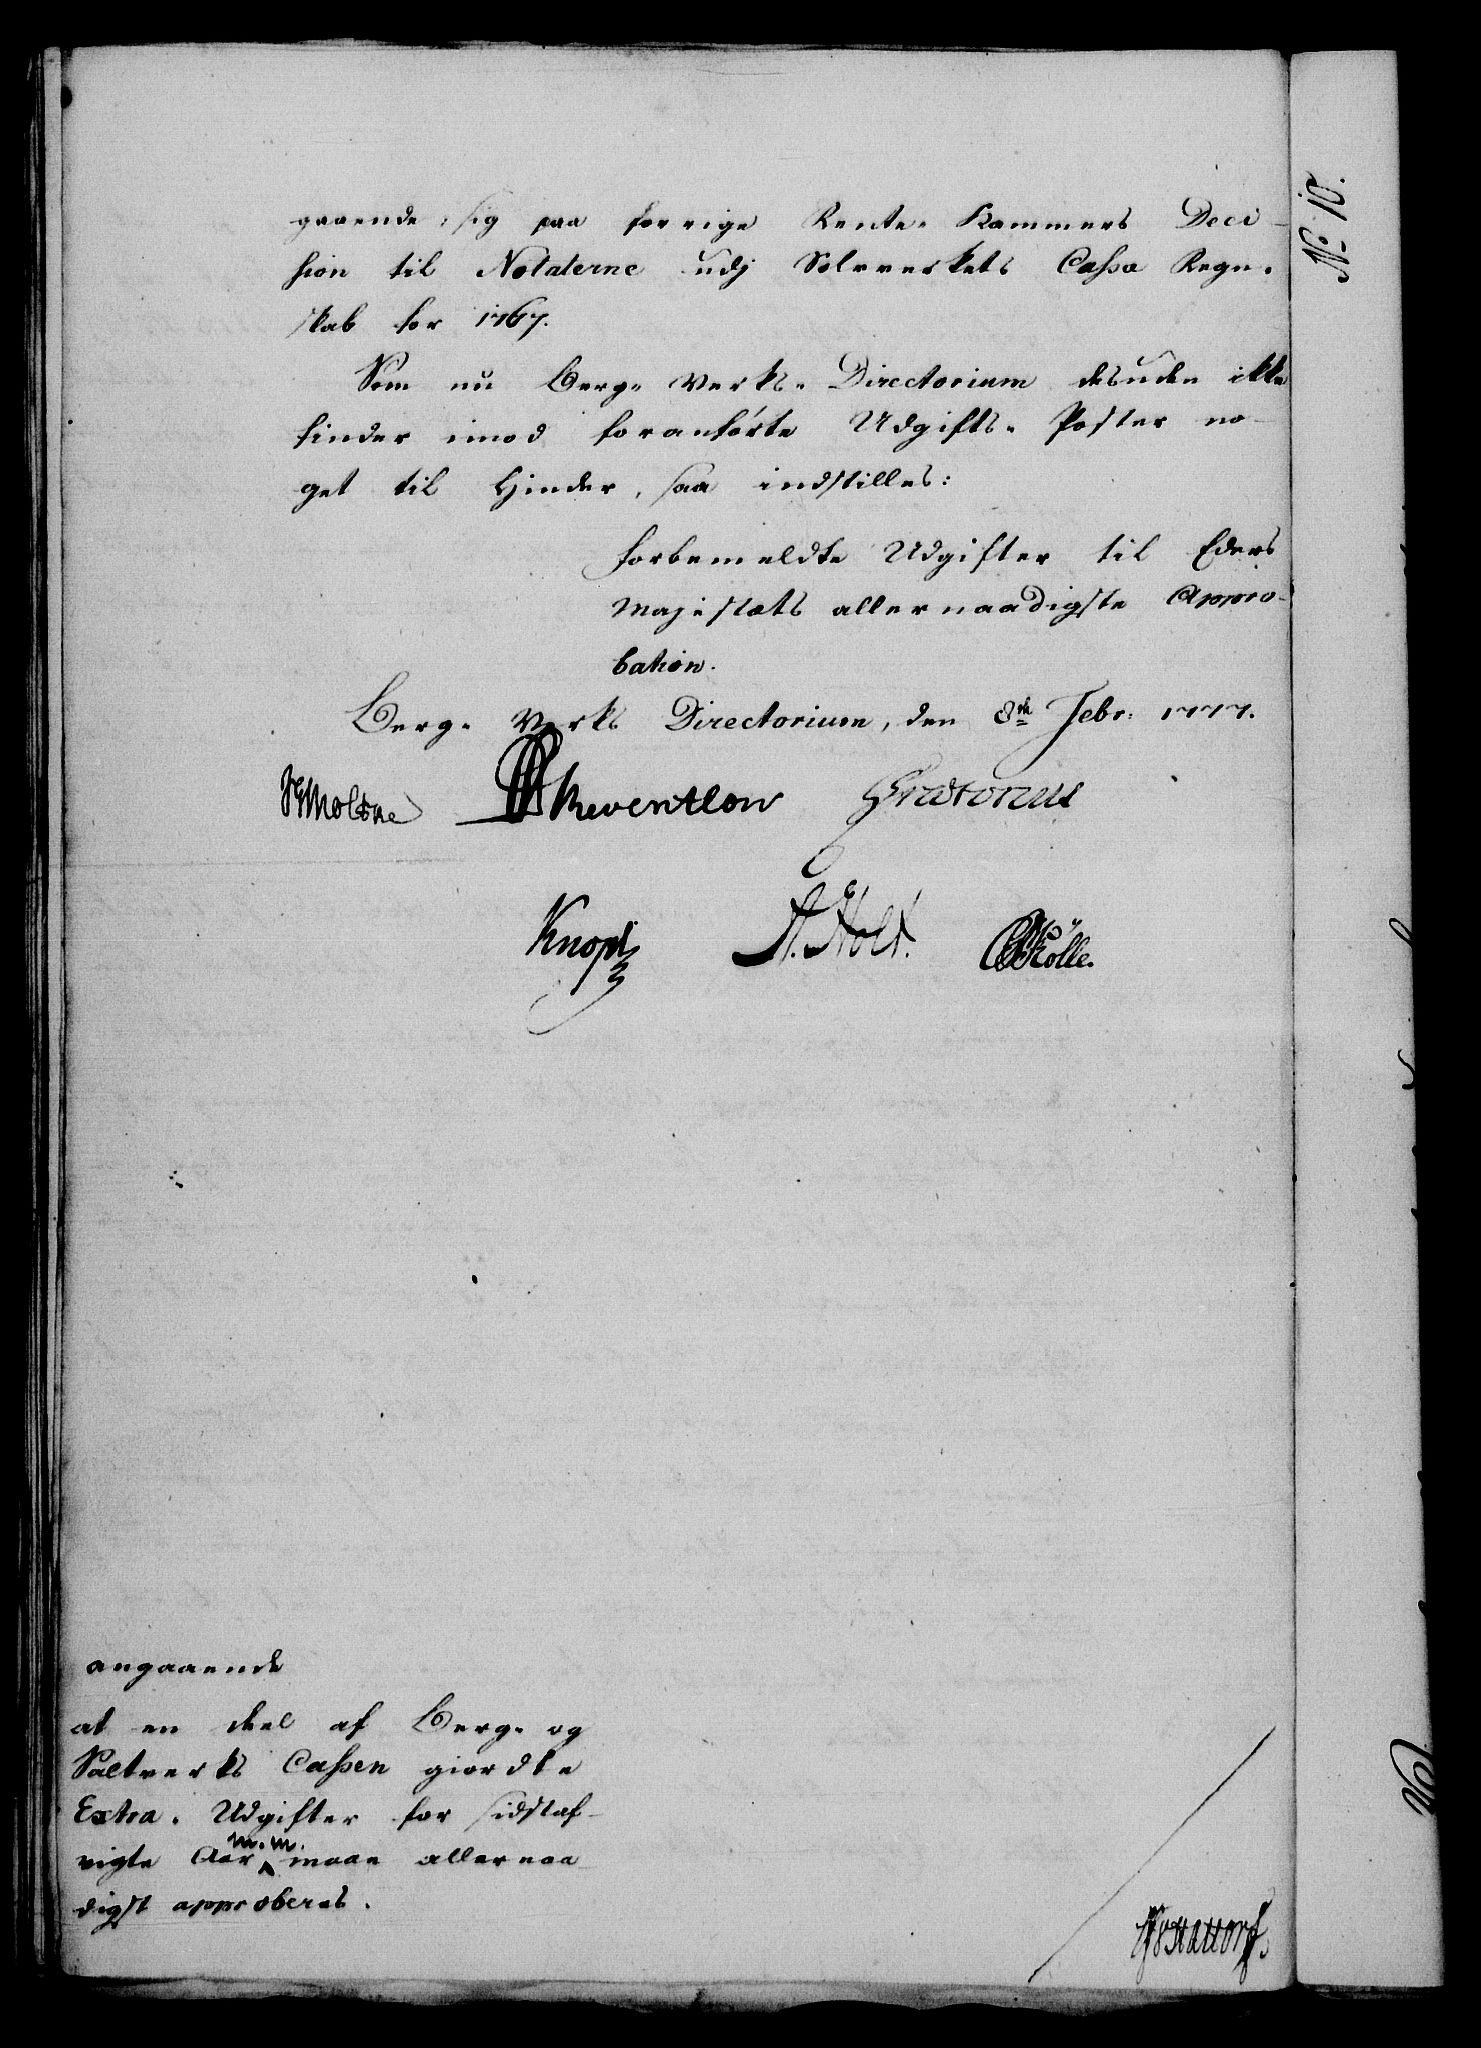 graende, sig paa forrige Rente-Kammers Deci-
sion til Notaterne udj Sølvverkets Cassa Regn-
skab for 1767.
Som nu Berg-Verks-Directorium desuden ikke
finder imod foranførte Udgifts-Poster no-
get til Hinder, saa indstilles:
forbemeldte Udgifter til Eders
Majestæts allernaadigste Appro-
bation.
Berg-Verks Directorium, den 8de Febr: 1777.
Moltke Reventlow Prætorius
Knopf A. Holt. Kölle.
angaaende
at en deel af Berg- og
Saltverks Cassen giordte
Extra-Udgifter for sidstaf-
vigte Aar m.m. maae allernaa-
digst approberes.
No 10.